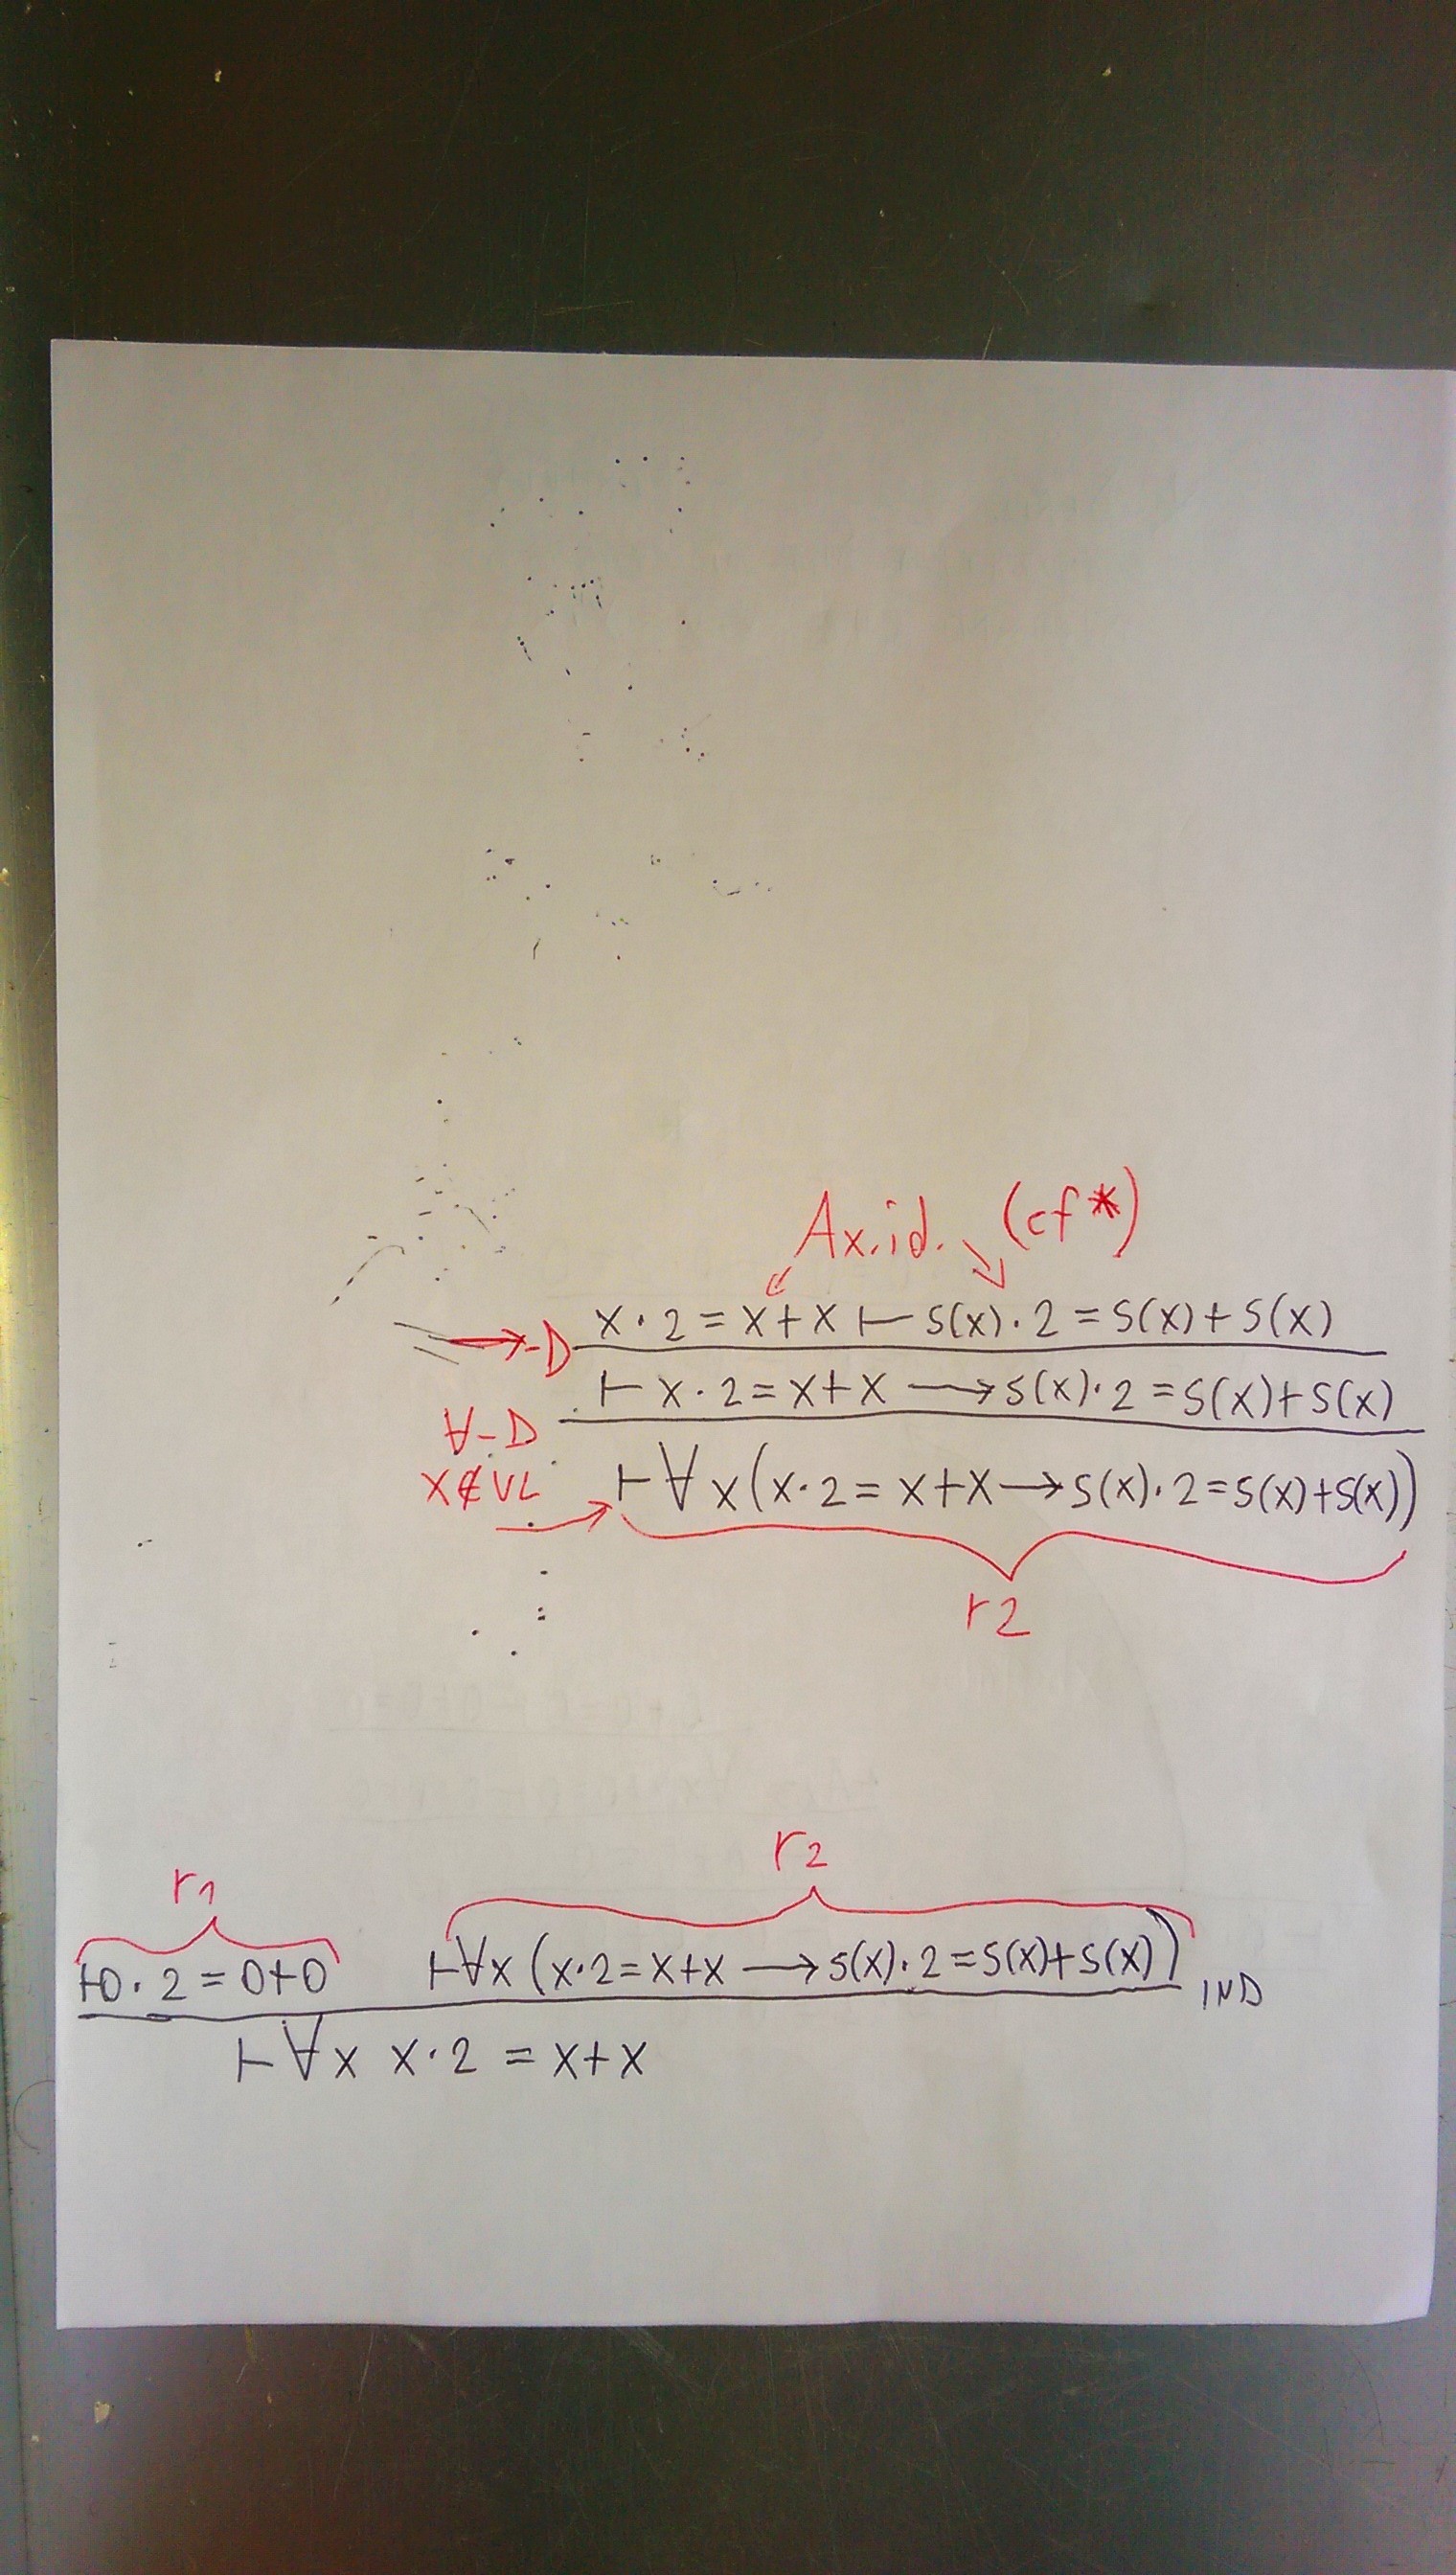 Ax.id. (cf *)
→-D x · 2 = x + x ⊢ s(x) · 2 = s(x) + s(x)
⊢ x · 2 = x + x → s(x) · 2 = s(x) + s(x)
∀-D
x ∉ VL ⊢ ∀x (x · 2 = x + x → s(x) · 2 = s(x) + s(x))
r2
r1 r2
⊢ 0 · 2 = 0 + 0 ⊢ ∀x (x · 2 = x + x → s(x) · 2 = s(x) + s(x)) IND
⊢ ∀x x · 2 = x + x